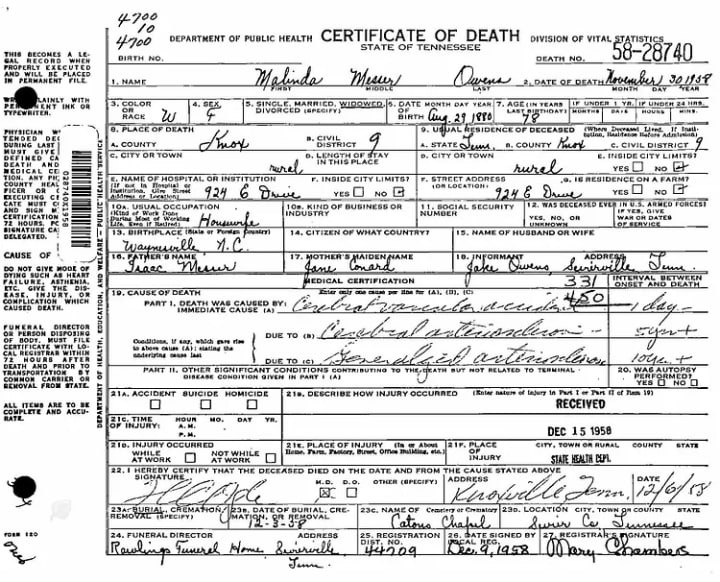 4700
10
4700
DEPARTMENT OF PUBLIC HEALTH CERTIFICATE OF DEATH DIVISION OF VITAL STATISTICS
STATE OF TENNESSEE
BIRTH NO. DEATH NO. 58-28740
1. NAME Malinda Messer Owens 2. DATE OF DEATH November 30 1958
FIRST MIDDLE LAST MONTH DAY YEAR
3. COLOR OR RACE W 4. SEX F 5. SINGLE, MARRIED, WIDOWED, DIVORCED (SPECIFY) 6. DATE OF BIRTH MONTH DAY YEAR Aug. 29 1880 7. AGE (IN YEARS LAST BIRTHDAY) 78 IF UNDER 1 YR. MONTHS DAYS IF UNDER 24 HRS. HOURS MIN.
8. PLACE OF DEATH 9. USUAL RESIDENCE OF DECEASED (Where Deceased Lived. If Institution, Residence Before Admission)
A. COUNTY Knox B. CIVIL DISTRICT 9 A. STATE Tenn. B. COUNTY Knox C. CIVIL DISTRICT 9
C. CITY OR TOWN rural D. LENGTH OF STAY IN THIS PLACE D. CITY OR TOWN rural E. INSIDE CITY LIMITS? YES NO
E. NAME OF HOSPITAL OR INSTITUTION (If not in Hospital or Institution, Give Street Address or Location) 924 E Drive F. INSIDE CITY LIMITS? YES NO F. STREET ADDRESS (OR LOCATION) 924 E Drive G. IS RESIDENCE ON A FARM? YES NO
10A. USUAL OCCUPATION (Kind of Work Done During Most of Working Life, Even if Retired) Housewife 10B. KIND OF BUSINESS OR INDUSTRY 11. SOCIAL SECURITY NUMBER 12. WAS DECEASED EVER IN U.S. ARMED FORCES? YES, NO, OR UNKNOWN IF YES, GIVE WAR OR DATES OF SERVICE
13. BIRTHPLACE (State or Foreign Country) Waynesville N.C. 14. CITIZEN OF WHAT COUNTRY? 15. NAME OF HUSBAND OR WIFE
16. FATHER'S NAME Isaac Messer 17. MOTHER'S MAIDEN NAME Jane Conard 18. INFORMANT ADDRESS Jake Owens, Sevierville Tenn.
MEDICAL CERTIFICATION 331 INTERVAL BETWEEN ONSET AND DEATH
19. CAUSE OF DEATH Enter only one cause per line for (A), (B), (C) 450
PART I. DEATH WAS CAUSED BY: IMMEDIATE CAUSE (A) Cerebral vascular accident 1 day
Conditions, if any, which gave rise to above cause (A) stating the underlying cause last
DUE TO (B) Cerebral arteriosclerosis 5 yrs +
DUE TO (C) Generalized arteriosclerosis 10 yrs +
PART II. OTHER SIGNIFICANT CONDITIONS CONTRIBUTING TO THE DEATH BUT NOT RELATED TO TERMINAL DISEASE CONDITION GIVEN IN PART I (A) 20. WAS AUTOPSY PERFORMED? YES NO
21A. ACCIDENT SUICIDE HOMICIDE 21B. DESCRIBE HOW INJURY OCCURRED (Enter nature of injury in Part I or Part II of Item 19)
RECEIVED
21C. TIME OF INJURY: HOUR MO. DAY YR. A. M. P. M.
DEC 15 1958
21D. INJURY OCCURRED WHILE AT WORK NOT WHILE AT WORK 21E. PLACE OF INJURY (In or About Home, Farm, Factory, Street, Office Building, etc.) 21F. PLACE OF INJURY CITY, TOWN OR RURAL COUNTY STATE
STATE HEALTH DEPT.
22. I HEREBY CERTIFY THAT THE DECEASED DIED ON THE DATE AND FROM THE CAUSE STATED ABOVE
SIGNATURE M.D. D.O. OTHER (SPECIFY) ADDRESS DATE
Knoxville Tenn. 12/6/58
23A. BURIAL, CREMATION, REMOVAL (SPECIFY) 23B. DATE OF BURIAL, CREMATION, OR REMOVAL 12-3-58 23C. NAME OF Cemetery or Crematory Catons Chapel 23D. LOCATION CITY, TOWN OR COUNTY STATE Sevier Co. Tennessee
24. FUNERAL DIRECTOR ADDRESS Rawlings Funeral Home Sevierville Tenn. 25. REGISTRATION DIST. NO. 44709 26. DATE SIGNED BY LOCAL REG. Dec. 9, 1958 27. REGISTRAR'S SIGNATURE Mary Chambers
THIS BECOMES A LEGAL RECORD WHEN PROPERLY EXECUTED AND WILL BE PLACED IN PERMANENT FILE.
PLAINLY WITH PERMANENT INK OR TYPEWRITER.
CAUSE OF
DO NOT GIVE MODE OF DYING SUCH AS HEART FAILURE, ASTHENIA, ETC. GIVE THE DISEASE, INJURY, OR COMPLICATION WHICH CAUSED DEATH.
FUNERAL DIRECTOR OR PERSON DISPOSING OF BODY, MUST FILE CERTIFICATE WITH LOCAL REGISTRAR WITHIN 72 HOURS AFTER DEATH AND PRIOR TO TRANSPORTATION BY COMMON CARRIER OR REMOVAL FROM STATE.
ALL ITEMS ARE TO BE COMPLETE AND ACCURATE.
DEPARTMENT OF HEALTH, EDUCATION, AND WELFARE—PUBLIC HEALTH SERVICE
FORM 120